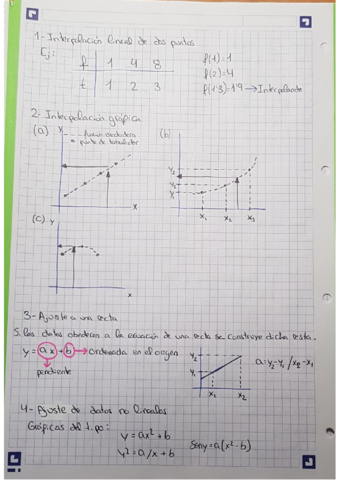 1- Interpolación lineal de dos puntos
Ej:
f 1 4 8
t 1 2 3
f(1)=1
f(2)=4
f(1'3)=1'9 → Interpolando
2- Interpolación gráfica
(a) y
--- función verdadera
• punto de tabulador
x
(b)
y₃
y₂
y₁
x₁ x₂ x₃
(c) y
x
3- Ajuste a una recta
Si los datos obedecen a la ecuación de una recta se construye dicha recta.
y = ax + b → ordenada en el origen
pendiente
y₂
y₁
x₁ x₂
a = y₂-y₁ / x₂-x₁
4- Ajuste de datos no lineales
Gráficas del tipo:
y = ax² + b
y² = a/x + b
Sen y = a(x²-b)